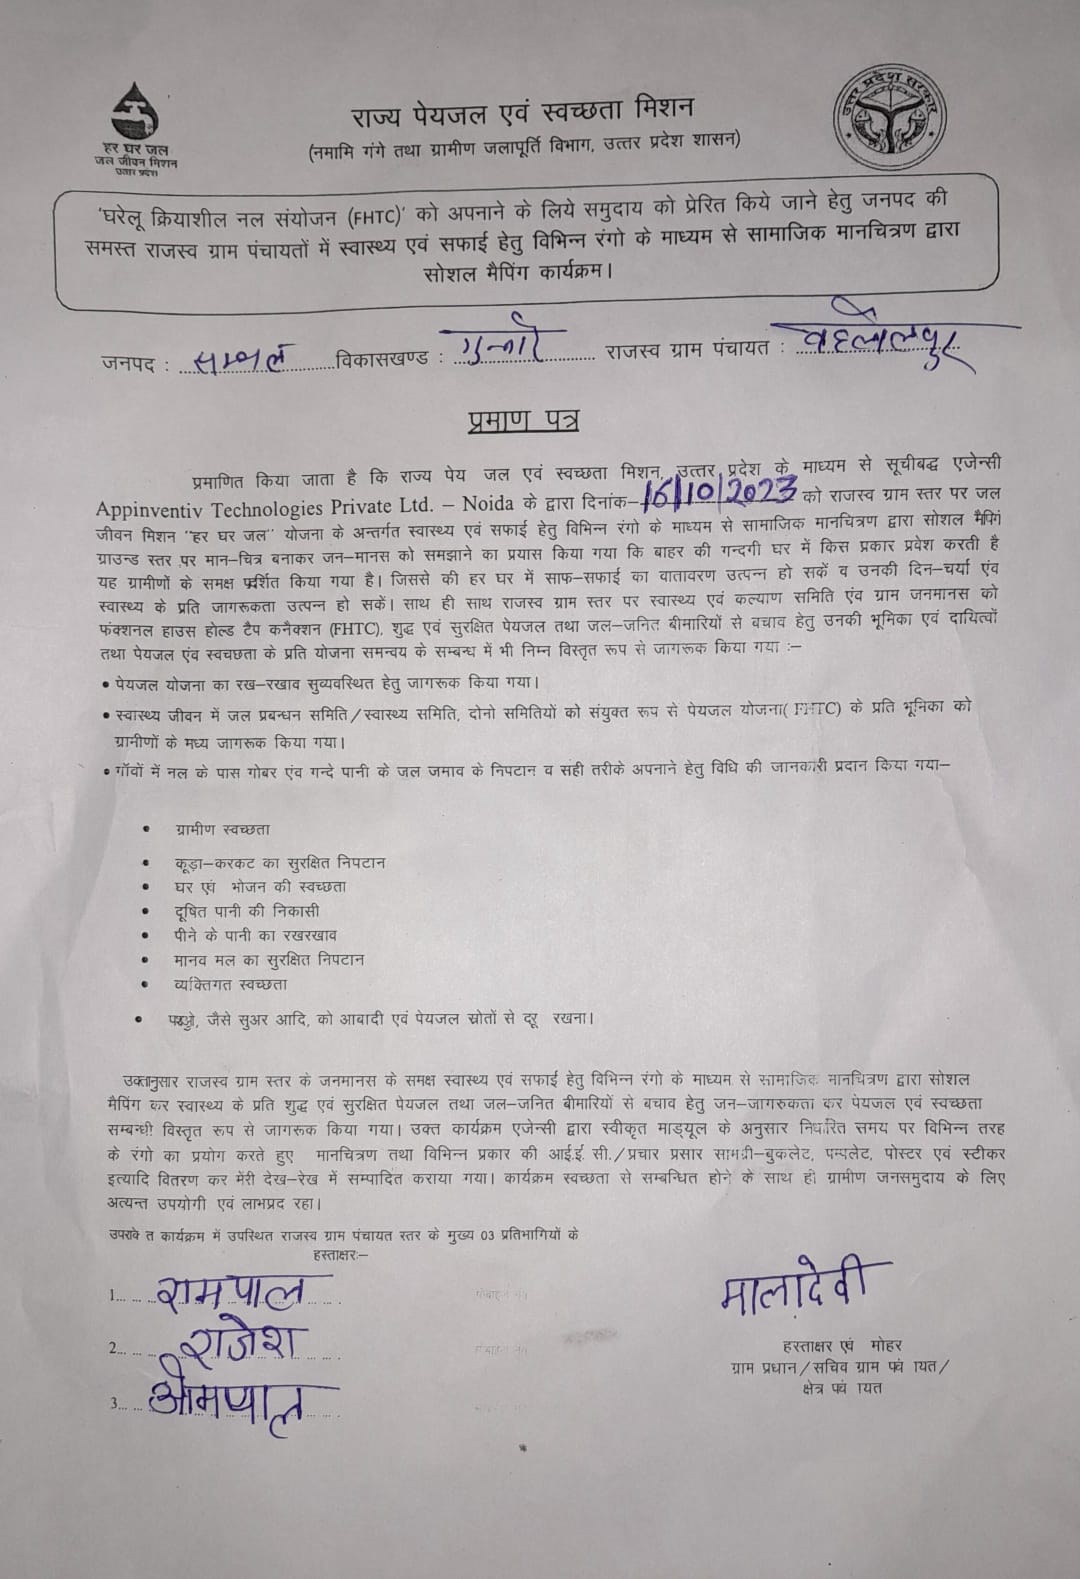 राज्य पेयजल एवं स्वच्छता मिशन
(नमामि गंगे तथा ग्रामीण जलापूर्ति विभाग, उत्तर प्रदेश शासन)
हर घर जल
जल जीवन मिशन
उत्तर प्रदेश
उत्तर प्रदेश सरकार
'घरेलू क्रियाशील नल संयोजन (FHTC)' को अपनाने के लिये समुदाय को प्रेरित किये जाने हेतु जनपद की
समस्त राजस्व ग्राम पंचायतों में स्वास्थ्य एवं सफाई हेतु विभिन्न रंगो के माध्यम से सामाजिक मानचित्रण द्वारा
सोशल मैपिंग कार्यक्रम।
जनपद : सम्भल विकासखण्ड : गुन्नौर राजस्व ग्राम पंचायत : बहलोलपुर
प्रमाण पत्र
प्रमाणित किया जाता है कि राज्य पेय जल एवं स्वच्छता मिशन, उत्तर प्रदेश के माध्यम से सूचीबद्ध एजेन्सी
Appinventiv Technologies Private Ltd. – Noida के द्वारा दिनांक–16/10/2023 को राजस्व ग्राम स्तर पर जल
जीवन मिशन "हर घर जल" योजना के अन्तर्गत स्वास्थ्य एवं सफाई हेतु विभिन्न रंगो के माध्यम से सामाजिक मानचित्रण द्वारा सोशल मैपिंग
ग्राउन्ड स्तर पर मान–चित्र बनाकर जन–मानस को समझाने का प्रयास किया गया कि बाहर की गन्दगी घर में किस प्रकार प्रवेश करती है
यह ग्रामीणों के समक्ष प्रर्दशित किया गया है। जिससे की हर घर में साफ-सफाई का वातावरण उत्पन्न हो सकें व उनकी दिन–चर्या एंव
स्वास्थ्य के प्रति जागरूकता उत्पन्न हो सकें। साथ ही साथ राजस्व ग्राम स्तर पर स्वास्थ्य एवं कल्याण समिति एंव ग्राम जनमानस को
फंक्शनल हाउस होल्ड टैप कनैक्शन (FHTC), शुद्ध एवं सुरक्षित पेयजल तथा जल–जनित बीमारियों से बचाव हेतु उनकी भूमिका एवं दायित्वों
तथा पेयजल एंव स्वचछता के प्रति योजना समन्वय के सम्बन्ध में भी निम्न विस्तृत रूप से जागरूक किया गया :–
• पेयजल योजना का रख–रखाव सुव्यवस्थित हेतु जागरूक किया गया।
• स्वास्थ्य जीवन में जल प्रबन्धन समिति/स्वास्थ्य समिति, दोनो समितियों को संयुक्त रूप से पेयजल योजना( FHTC) के प्रति भूनिका को
ग्रानीणों के मध्य जागरूक किया गया।
• गॉवों में नल के पास गोबर एंव गन्दे पानी के जल जमाव के निपटान व सही तरीके अपनाने हेतु विधि की जानकारी प्रदान किया गया–
• ग्रामीण स्वच्छता
• कूड़ा–करकट का सुरक्षित निपटान
• घर एवं भोजन की स्वच्छता
• दूषित पानी की निकासी
• पीने के पानी का रखरखाव
• मानव मल का सुरक्षित निपटान
• व्यक्तिगत स्वच्छता
• जैसे सुअर आदि, को आबादी एवं पेयजल स्रोतों से दूर रखना।
उक्तानुसार राजस्व ग्राम स्तर के जनमानस के समक्ष स्वास्थ्य एवं सफाई हेतु विभिन्न रंगो के माध्यम से सामाजिक मानचित्रण द्वारा सोशल
मैपिंग कर स्वास्थ्य के प्रति शुद्ध एवं सुरक्षित पेयजल तथा जल–जनित बीमारियों से बचाव हेतु जन–जागरुकता कर पेयजल एवं स्वच्छता
सम्बन्धी विस्तृत रूप से जागरूक किया गया। उक्त कार्यक्रम एजेन्सी द्वारा स्वीकृत माड्यूल के अनुसार निर्धारित समय पर विभिन्न तरह
के रंगो का प्रयोग करते हुए मानचित्रण तथा विभिन्न प्रकार की आई.ई. सी./प्रचार प्रसार सामग्री–बुकलेट, पम्पलेट, पोस्टर एवं स्टीकर
इत्यादि वितरण कर मेरी देख–रेख में सम्पादित कराया गया। कार्यक्रम स्वच्छता से सम्बन्धित होने के साथ ही ग्रामीण जनसमुदाय के लिए
अत्यन्त उपयोगी एवं लाभप्रद रहा।
कार्यक्रम में उपस्थित राजस्व ग्राम पंचायत स्तर के मुख्य 03 प्रतिभागियों के
हस्ताक्षर:–
1... रामपाल
2... राजेश
3... ओमपाल
मालादेवी
हस्ताक्षर एवं मोहर
ग्राम प्रधान/सचिव ग्राम पंचायत/
क्षेत्र पंचायत